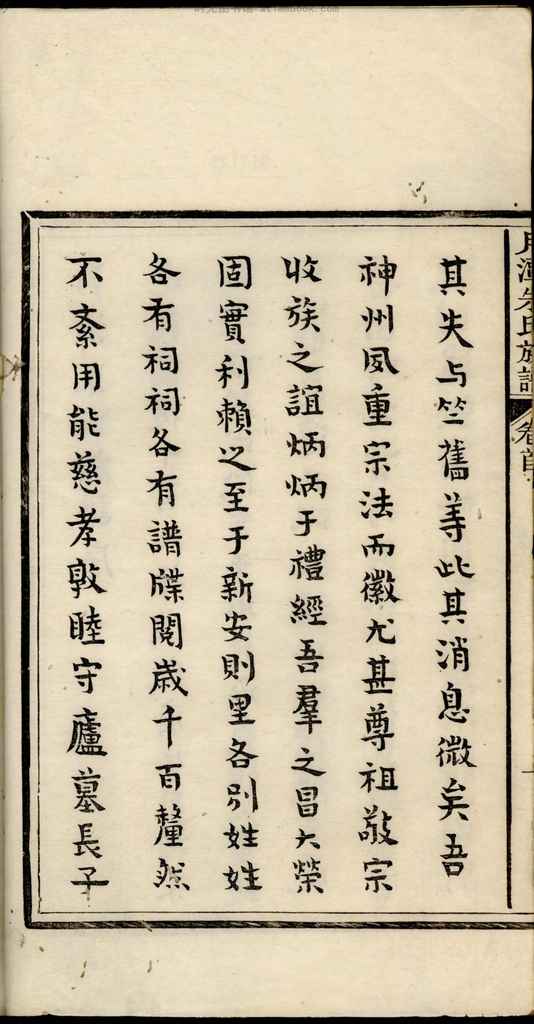 月潭朱氏族譜 卷首
其失与竺舊等此其消息微矣吾
神州風重宗法而徽尤甚尊祖敬宗
收族之誼炳炳于禮經吾羣之昌大榮
固實利賴之至于新安則里各別姓姓
各有祠祠各有譜牒閱歲千百釐然
不紊用能慈孝敦睦守廬墓長子